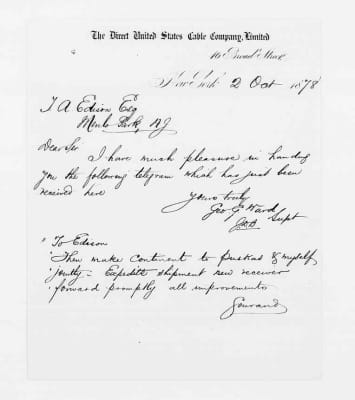 The Direct United States Cable Company, Limited
16 Broad Street
New York 2 Oct 1878
T A Edison Esq
Menlo Park, NJ
Dear Sir
I have much pleasure in handing
you the following telegram which has just been
received here
Yours truly
Geo G Ward
Supt
"To Edison
"Then make continent to Puskas & myself
"jointly - Expedite shipment new receiver
"forward promptly all improvements
Gouraud